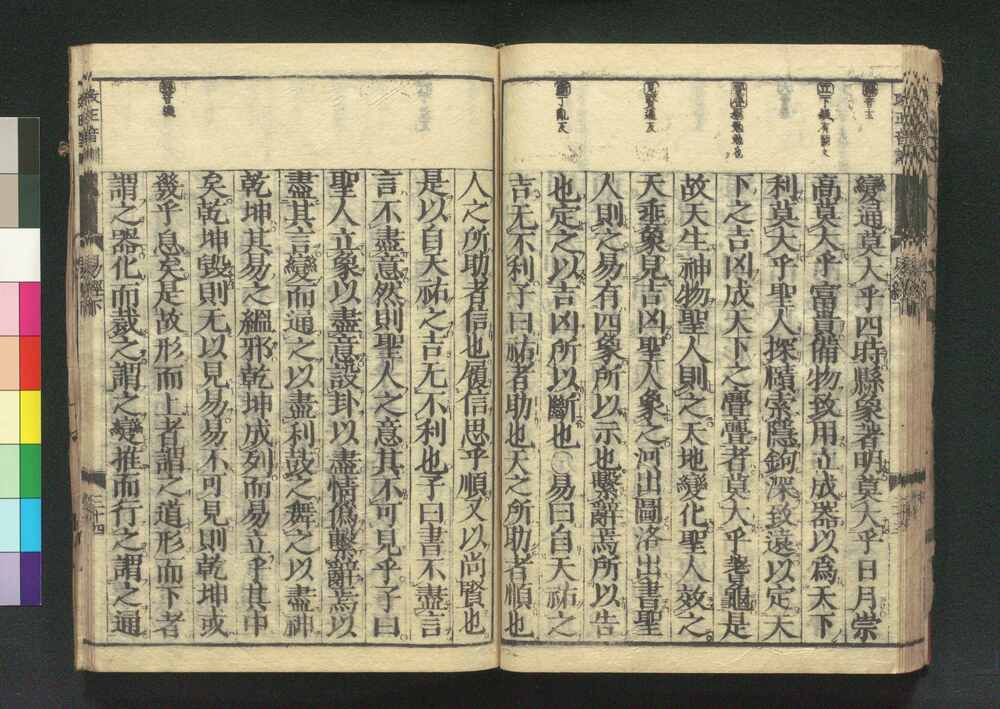 變通莫大乎四時縣象著明莫大乎日月崇
高莫大乎富貴備物致用立成器以為天下
利莫大乎聖人探賾索隱鉤深致遠以定天
下之吉凶成天下之亹亹者莫大乎蓍龜是
故天生神物聖人則之天地變化聖人效之
天垂象見吉凶聖人象之河出圖洛出書聖
人則之易有四象所以示也繫辭焉所以告
也定之以吉凶所以斷也○易曰自天祐之
吉无不利子曰祐者助也天之所助者順也
人之所助者信也履信思乎順又以尚賢也
是以自天祐之吉无不利也子曰書不盡言
言不盡意然則聖人之意其不可見乎子曰
聖人立象以盡意設卦以盡情偽繫辭焉以
盡其言變而通之以盡利鼓之舞之以盡神
乾坤其易之縕邪乾坤成列而易立乎其中
矣乾坤毀則无以見易易不可見則乾坤或
幾乎息矣是故形而上者謂之道形而下者
謂之器化而裁之謂之變推而行之謂之通
改正音訓
易經下
二十四